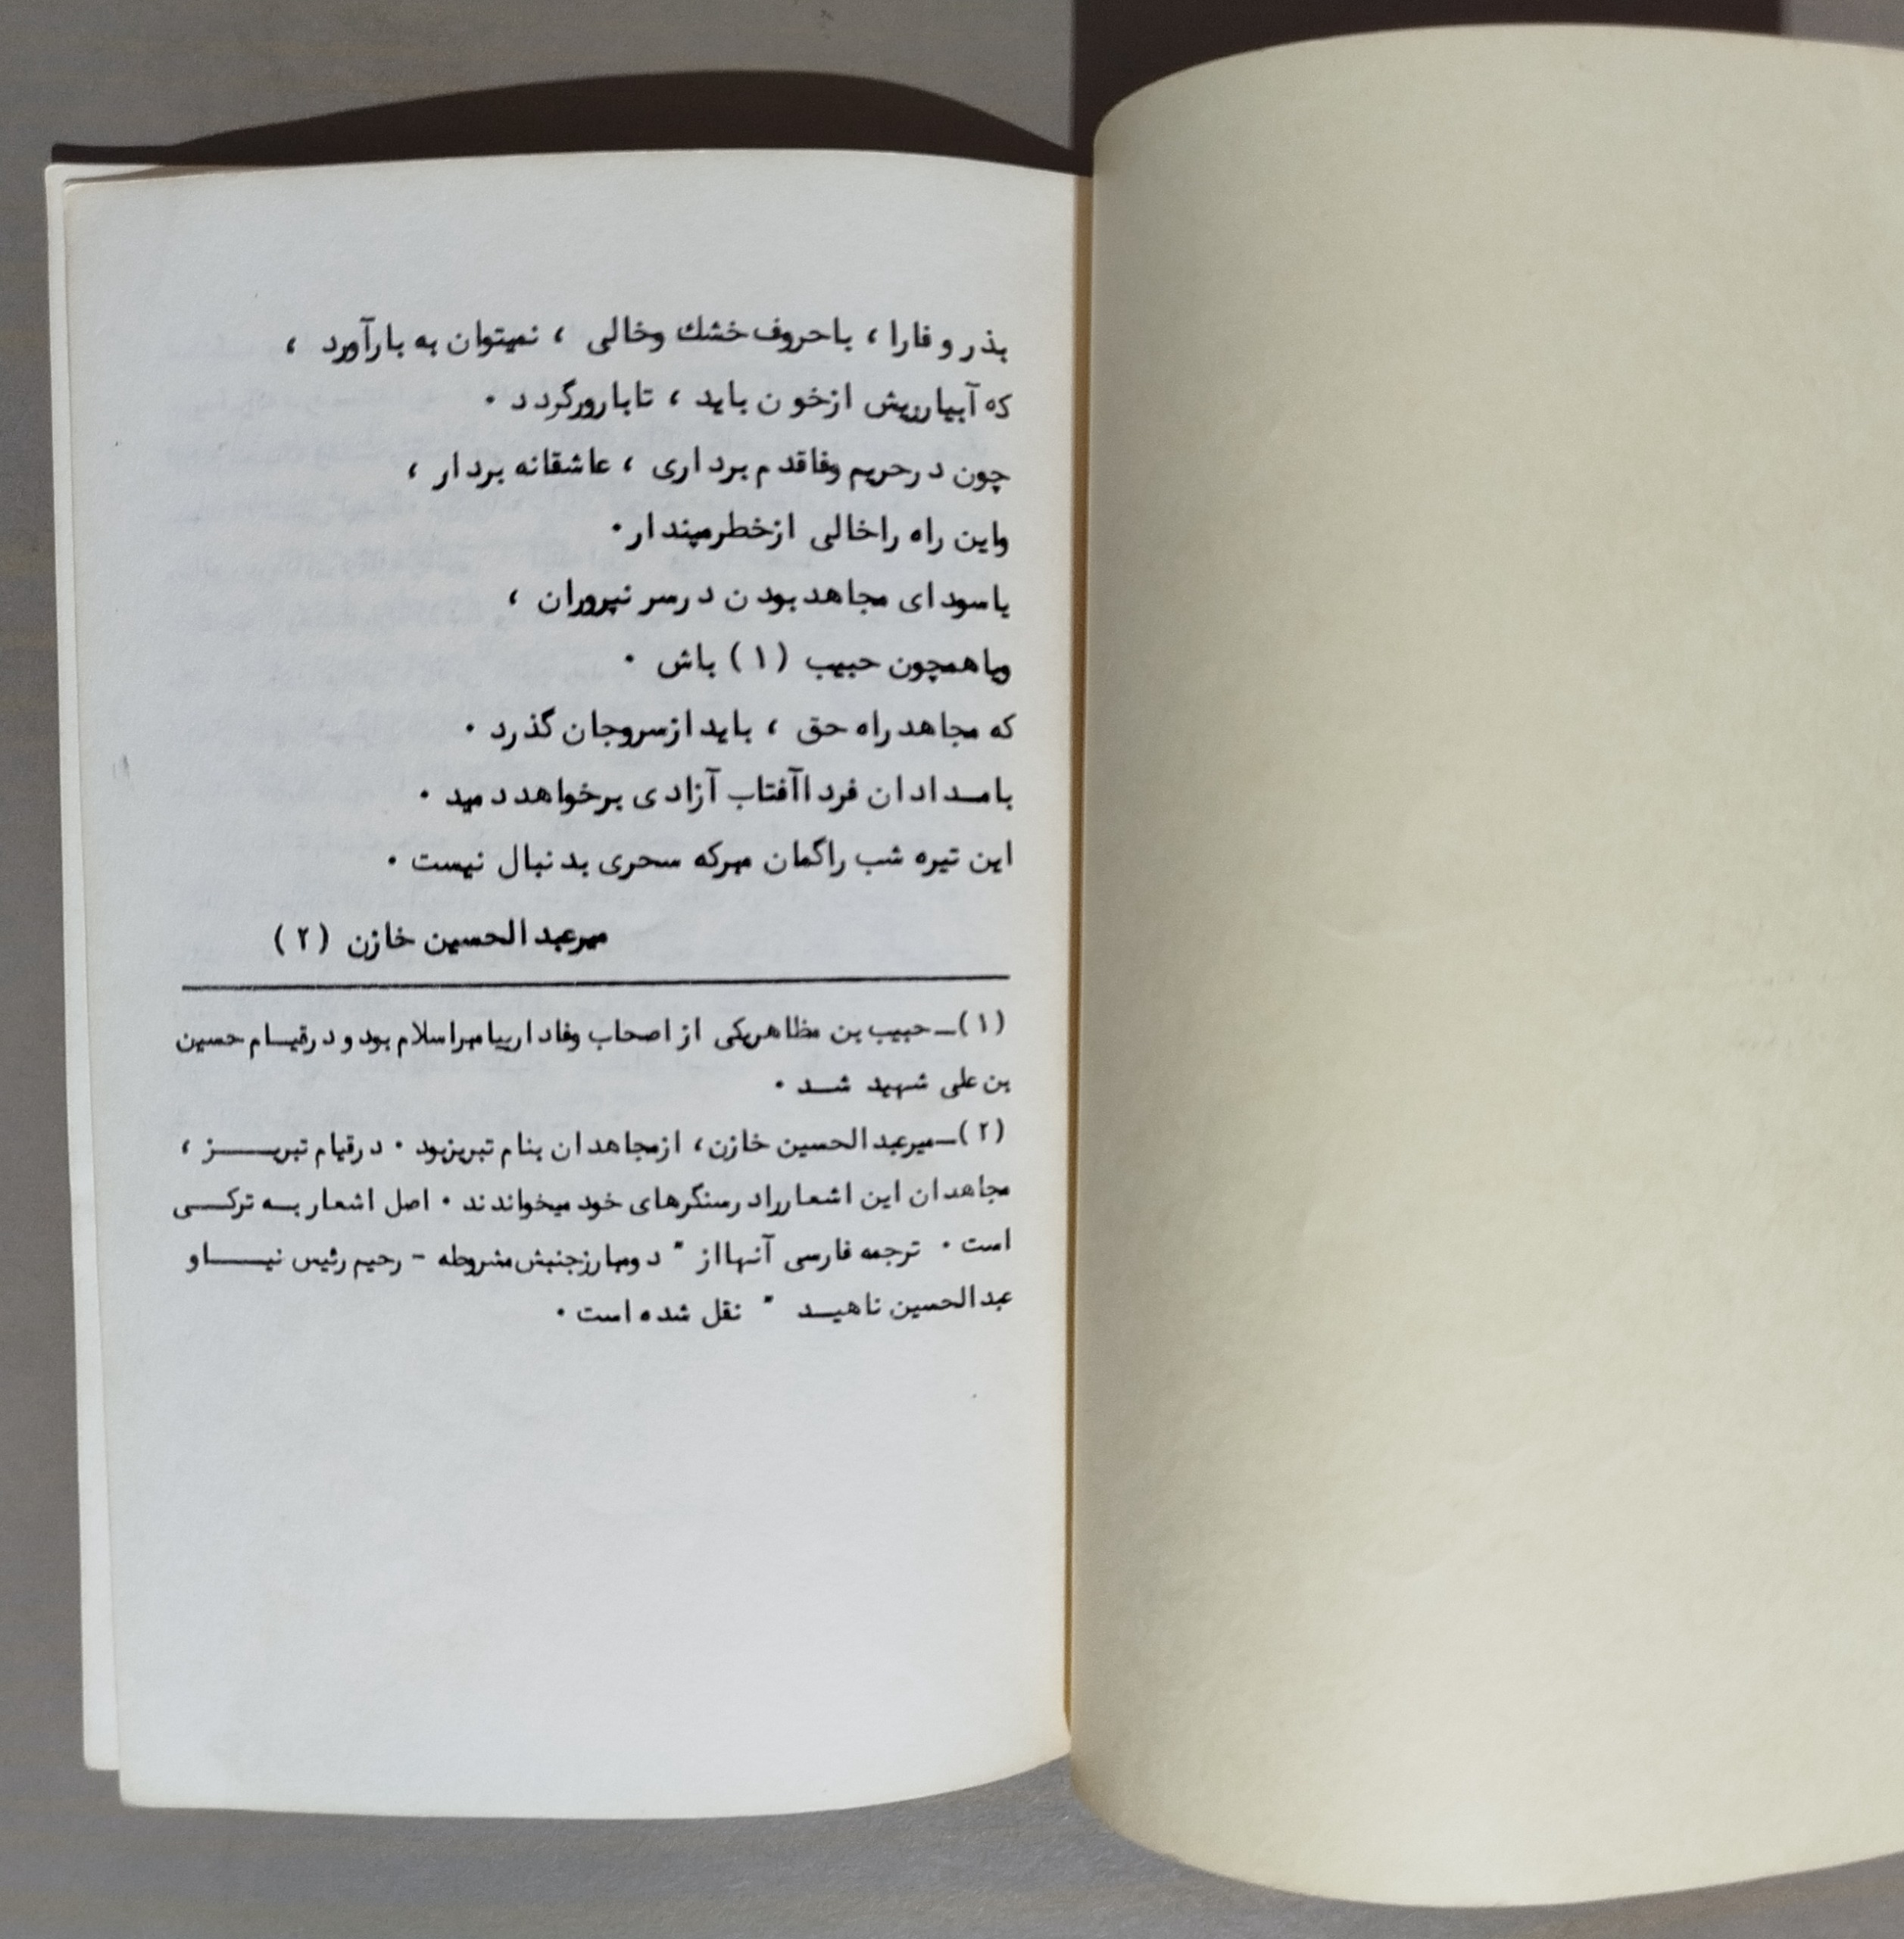 بذر وفارا، باحروف خشك وخالی، نمیتوان به بارآورد،
که آبیاریش ازخون باید، تابارورگردد.
چون درحریم وفاقدم برداری، عاشقانه بردار،
واین راه راخالی ازخطرمپندار.
یاسودای مجاهدبودن درسر نپروران،
ویاهمچون حبیب (۱) باش.
که مجاهدراه حق، بایدازسروجان گذرد.
بامدادان فرداآفتاب آزادی برخواهددمید.
این تیره شب راگمان مبرکه سحری بدنبال نیست.
میرعبدالحسین خازن (۲)
(۱)ـ حبیب بن مظاهریکی از اصحاب وفادارپیامبراسلام بودو درقیام حسین
بن علی شهید شد.
(۲)ـ میرعبدالحسین خازن، ازمجاهدان بنام تبریزبود. درقیام تبریز،
مجاهدان این اشعاررادرسنگرهای خودمیخواندند. اصل اشعاربه ترکی
است. ترجمه فارسی آنهااز " دومبارزجنبش مشروطه - رحیم رئیس نیاو
عبدالحسین ناهید " نقل شده است.